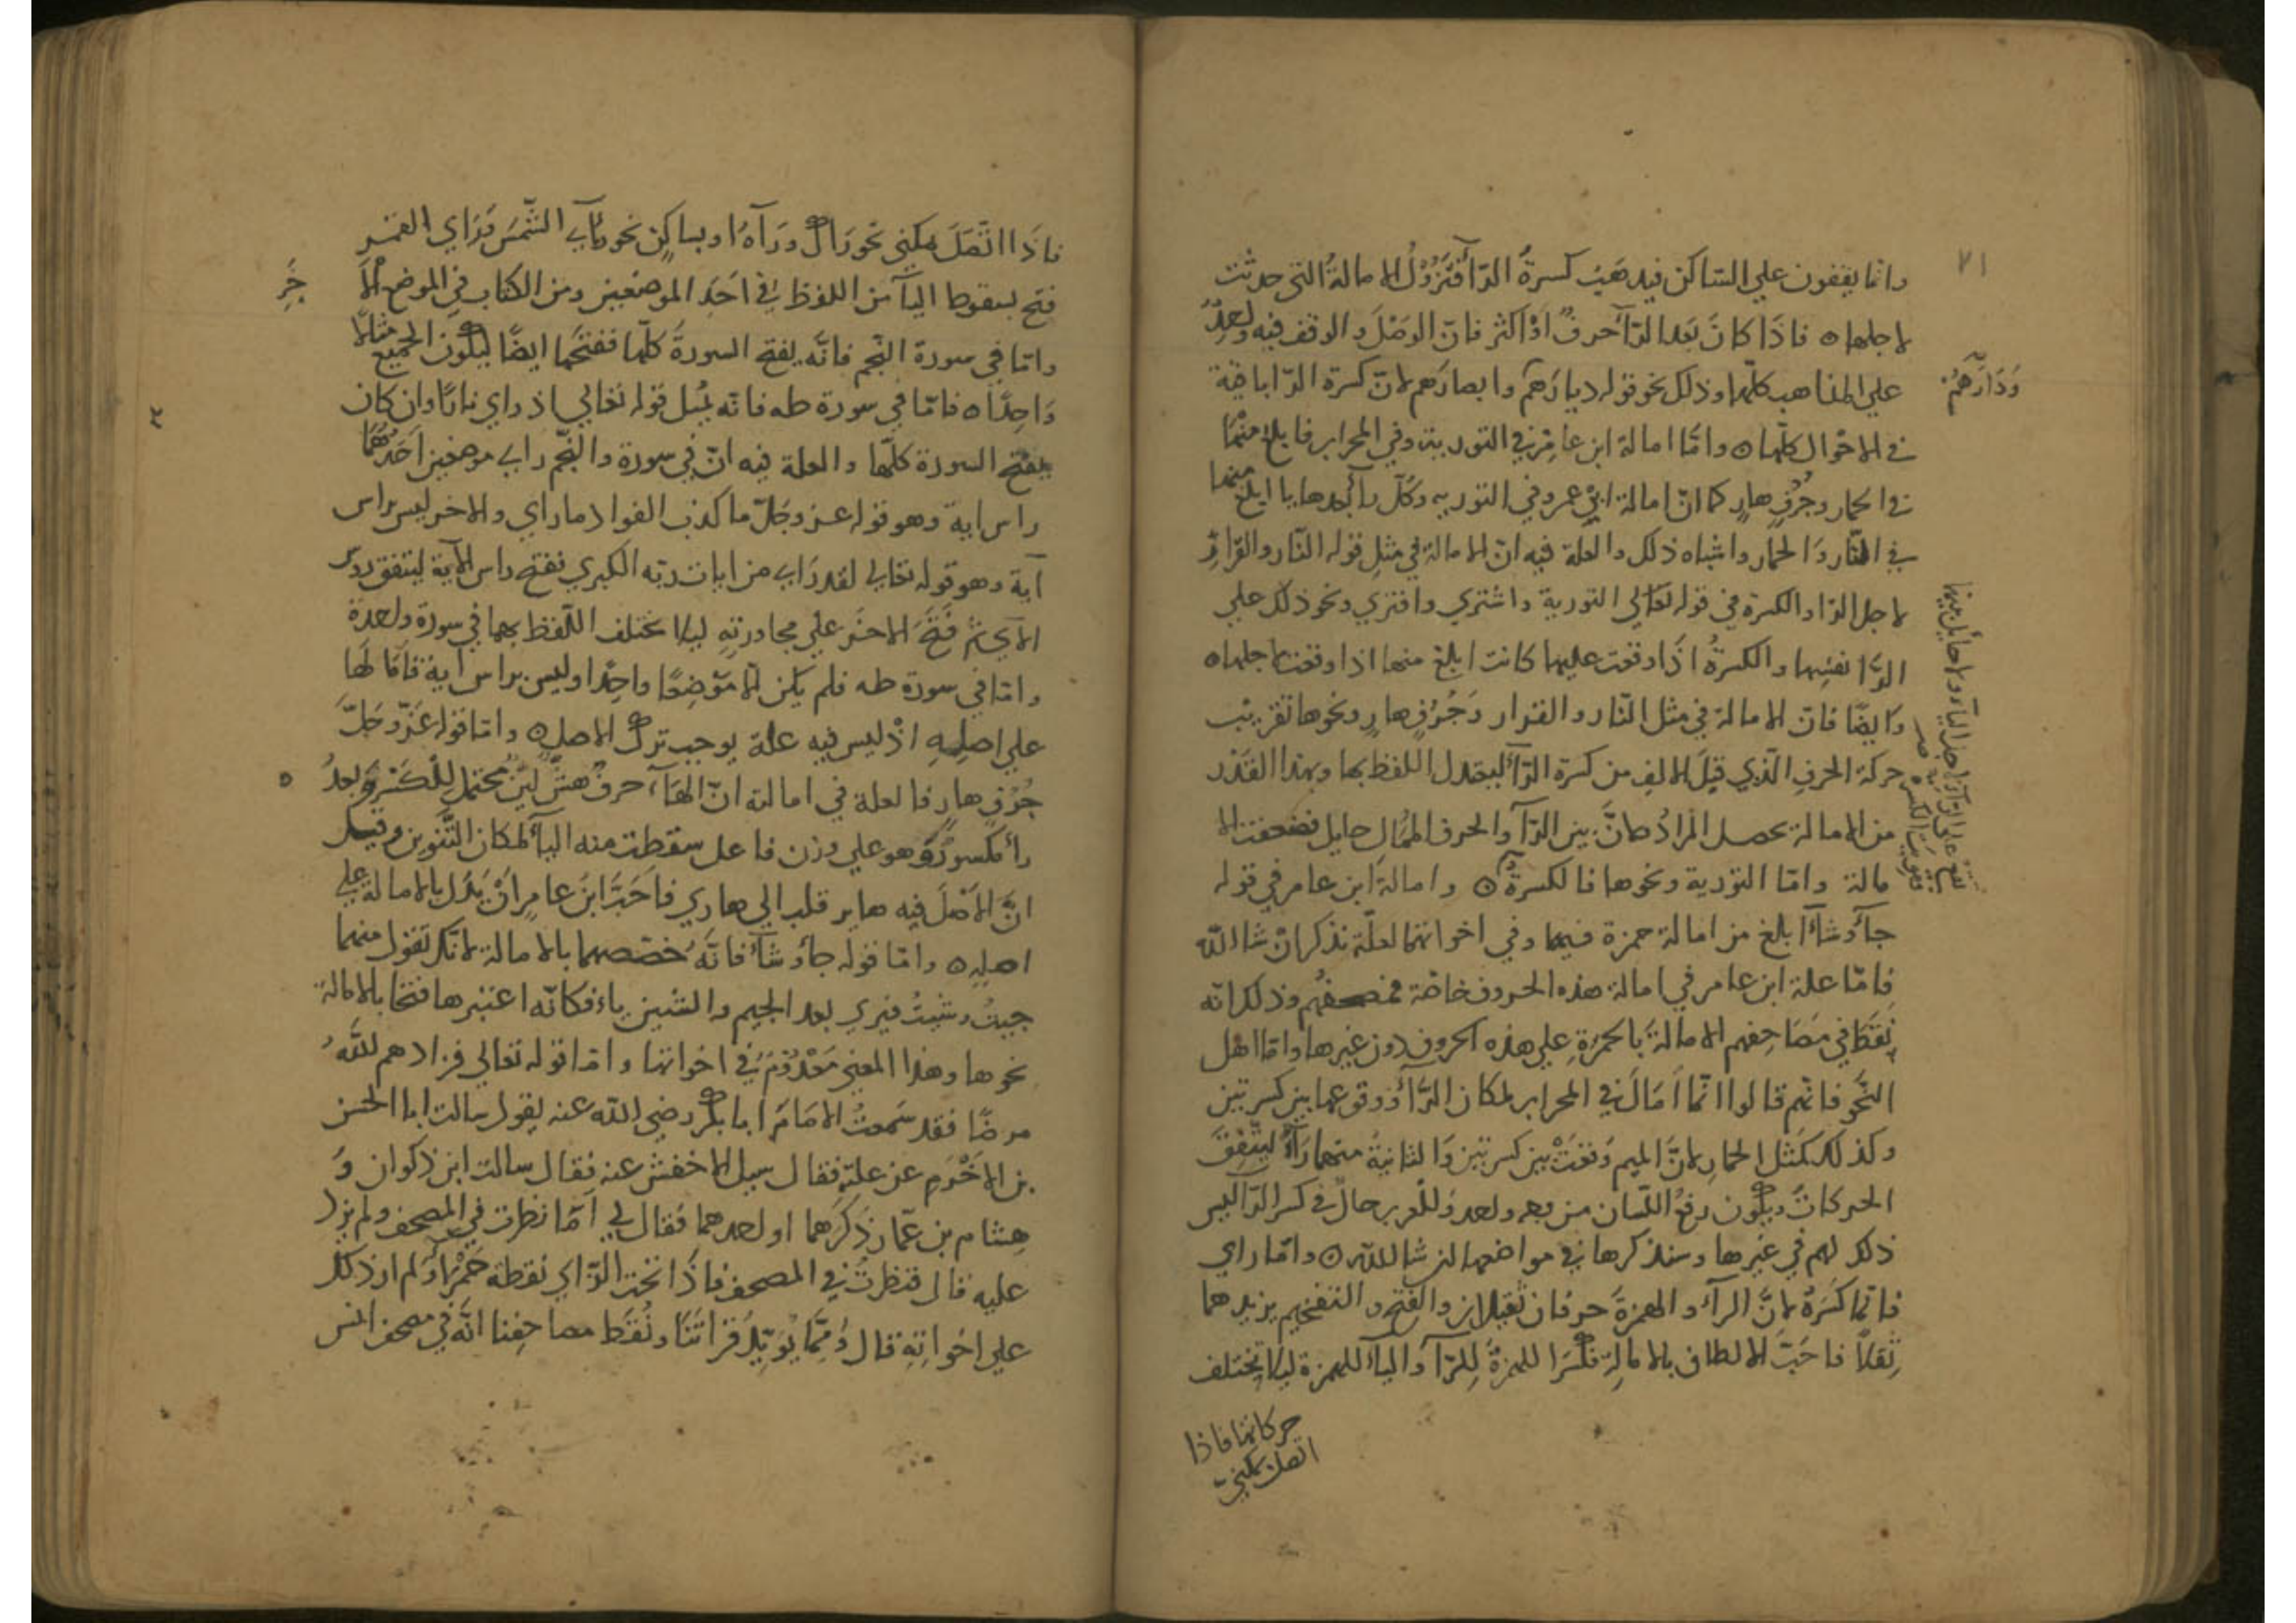 ٢١
وانما يقفون على الساكن فيذهب كسرة الرآ فتزول الامالة التي حدثت
لاجلها ه فاذا كان بعد الرآ حرف او اكثر فان الوصل والوقف فيه واحد
على المذاهب كلها وذلك نحو قوله ديارهم وابصارهم لان كسرة الرا باقية
ودارهم
في الاحوال كلها ه واما امالة ابن عامر في التورية وفي المحراب فابلغ منهما
في الحمار وجُرُفٍ هارٍ كما ان امالة ابي عمرو في التورية وكل رآ بعدها يا ابلغ منهما
في النار والحمار واشباه ذلك والعلة فيه ان الامالة في مثل قوله النار والقرار
لاجل الرا والكسرة في قوله تعالى التورية واشترى وافترى ونحو ذلك على
الرَّا نفسِها والكسرةُ اذا وقعت عليها كانت ابلغ منها اذا وقعت لاجلها ه
وايضًا فان الامالة في مثل النار والقرار وجُرُفٍ هارٍ ونحوها تقريب
حركة الحرف الّذي قبل الالف من كسرة الرّآ ليعتدل اللفظ بها وبهذا القَدْر
من الامالة يحصل المرادُ بين الرّآ والحرف المُمال حايل فضعفت الا
مالة واما التورية ونحوها فالكسرة ه وامالة ابن عامر في قوله
جآ وشآ ابلغ من امالة حمزة فيهما وفي اخواتهما لعلّة نذكر ان شا اللّه
فامّا علة ابن عامر في امالة هذه الحروف خاصّة فمصحفهم وذلك انّه
نقط في مصاحفهم الامالة بالحمرة على هذه الحروف دون غيرها واما اهل
النحو فانهم قالوا انّما امَالَ في المحراب لمكان الرّآ ووقوعها بين كسرتين
وكذلك كمثل الحمار لانّ الميم وَقعَتْ بين كسرتين والثانيةُ منهما رَآءٌ ليتّفِقَ
الحركات ويكون رفعُ اللّسان من وجه واحد وللعرب حالٌ في كسر الرّآ ليس
ذلك لهم في غيرها وسنذكرها في مواضعها ان شا اللّه ه وامّا راي
فانما كَسَرَهُ لانَّ الرآء والهمزةَ حرفان ثقيلان والفتح والتفخيم يزيدهما
ثِقَلاً فاحَبَّ الالطاف بالامالة فكَسَرَا للهمزة للرّآ والياء للهمزة ليلا يختلف
حركاتها فاذا
اتصل بمكنيّ
فاذا اتّصَلَ بمكني نحو رَاكَ ورَآهُ او بساكن نحو رَاي الشَّمْسَ ورَاي القمر
فتح لسقوط اليآ من اللفظ في احَدِ الموضعين ومن الكتاب في الموضع الا
خَرِ
وامّا في سورة النّجم فانّه يفتح السورةَ كلّها ففتحَها ايضًا ليكون الجميع مثالا
وَاحِدًا ه فامّا في سورة طه فانّه يُميل قوله تعالى اذ راي نارًا وان كان
يفتح السورة كلّها والعلة فيه انّ في سورة والنّجم راي موضعين احَدُهُمَا
راس اية وهو قوله عز وجَلّ ما كذب الفواد ما راي والاخر ليس براس
آية وهو قوله تعالى لقد رَاي من ايات ربّه الكبري ففتح راس الآية ليتفق روس
الآي ثم فَتَحَ الاخَر علي مجاورتِهِ ليلا يختلف اللّفظ بهما في سورة واحدة
وامّا في سورة طه فلم يكن الا مَوْضِعًا واحِدًا وليس براس آية فامَالَهَا
علي اصلِهِ اذْ ليس فيه علة يوجب ترك الاصل ه وامّا قوله عَزّ وجَلّ
جُرُفٍ هارٍ فالعلة في امالته انّ الهَآء حرفٌ هَشّ لَيّنٌ محتمل للكَسْر وبعدُ
رآ مكسورة وهو علي وزن فاعل سقطت منه اليآ لمكان التّنوين وقيل
انَّ الاصْلَ فيه هاير قلب الي هاري فاحَبَّ ابن عامر انْ يَدُل بالامالة علي
اصلِهِ ه وامّا قوله جآ وشآ فانّه خصّصهما بالامالة لانّك تقول منهما
جيتُ وشيتُ فيري بعد الجيم والشين ياء فكانّه اعتبرها فنحا بالامالة
نحوها وهذا المعني مَعْدُومٌ في اخواتها وامّا قوله تعالي فزادهم اللّهُ
مرضًا فقد سمعتُ الامَامَ ابا بكر رضي اللّه عنه يقول سالت ابا الحسن
بن الاخْرَمِ عن علّته فقال سيل الاخفش عنه فقال سالت ابن ذكوان وَ
هِشام بن عمّار ذَكَرَهما او احدهما فقال لي اما نظرت في المصحف ولم يزد
عليه قال فنظرتُ في المصحف فاذا تحت الزّاي نقطة حمرآء ولم ار ذلك
علي اخواتِهِ قال ومِمَّا يُوَيِّدُ قراتنَا ونُقَط مصاحِفنا انَّه في مصحف انس